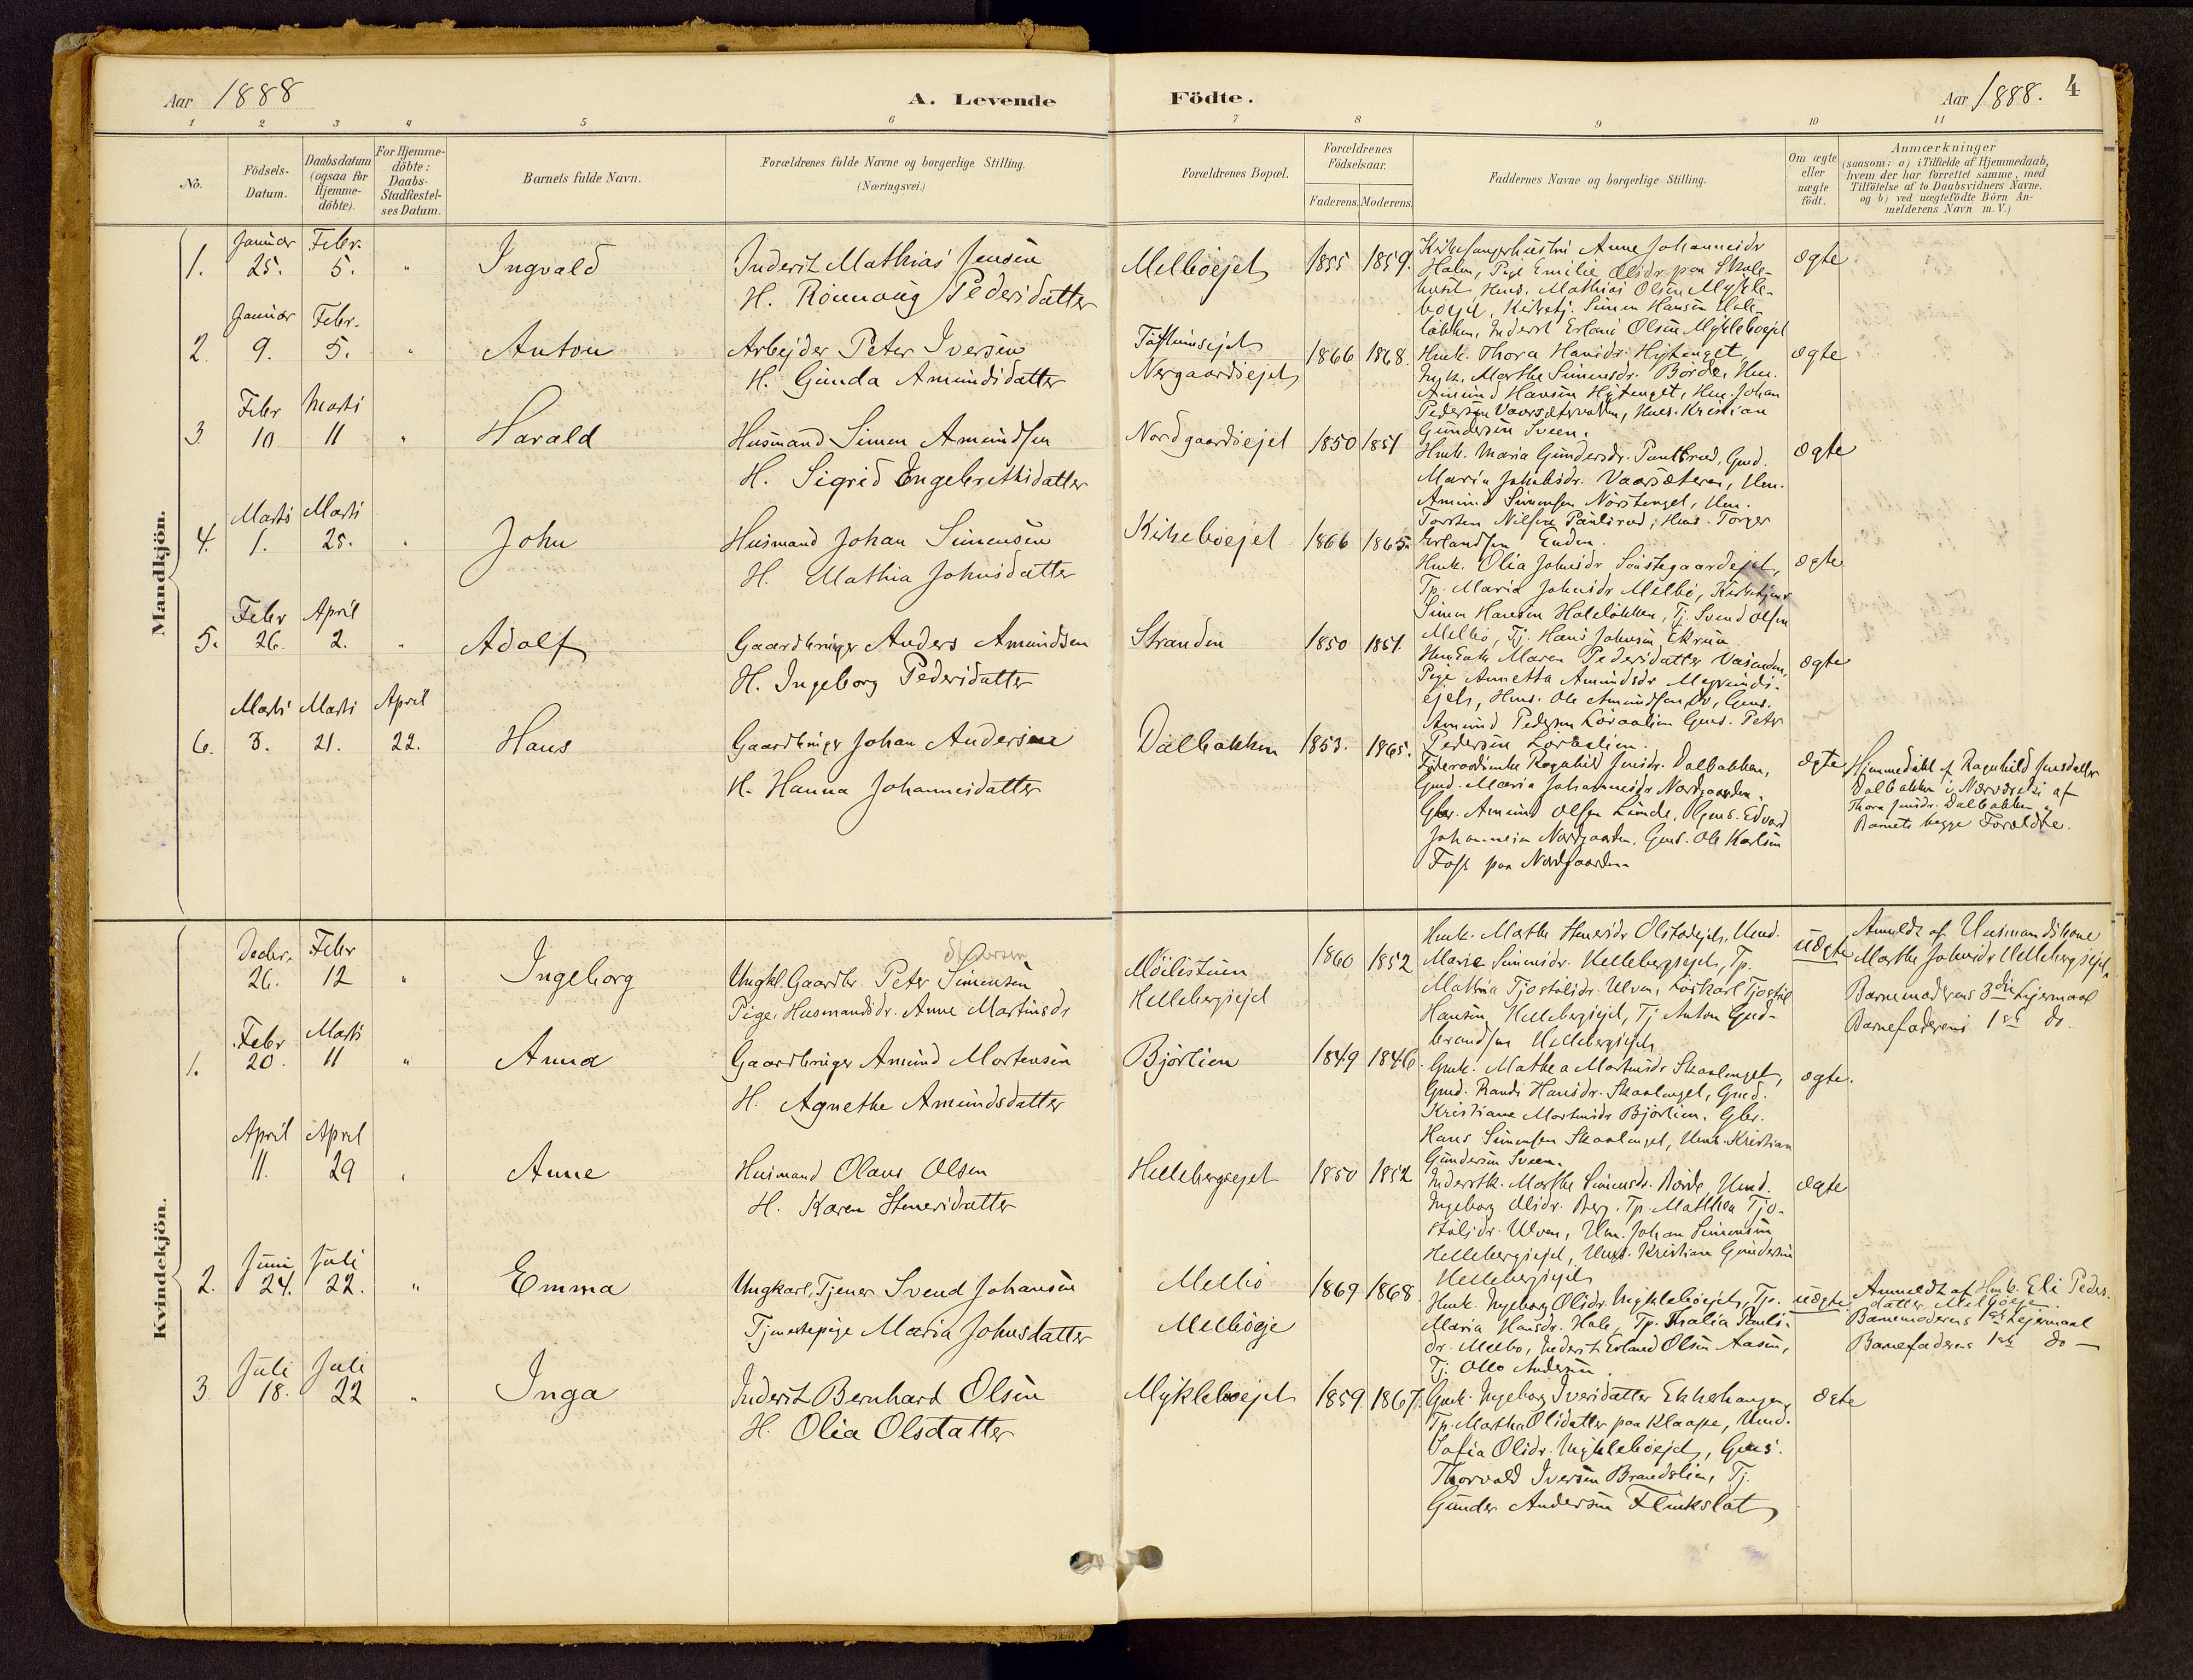 Aar 1888 A. Levende Födte. Aar 1888. 4
1 2 3 4 5 6 7 8 9 10 11
No.
Födsels-
Datum.
Daabsdatum
(ogsaa for
Hjemme-
döbte).
For Hjemme-
döbte:
Daabs-
Stadfæstel-
ses Datum.
Barnets fulde Navn.
Forældrenes fulde Navne og borgerlige Stilling.
(Næringsvei.)
Forældrenes Bopæl.
Forældrenes
Födselsaar.
Faderens. Moderens.
Faddernes Navne og borgerlige Stilling.
Om ægte
eller
uægte
födt.
Anmærkninger
(saasom: a) i Tilfælde af Hjemmedaab,
hvem der har forrettet samme, med
Tilföielse af to Daabsvidners Navne.
og b) ved uægtefödte Börn An-
melderens Navn m. V.)
Mandkjön.
1. Januar 25. Febr. 5. " Ingvald
Inderst Mathias Jensen
H. Rönnaug Pedersdatter
Melböejet 1855 1859.
Kirkesangerhustru Anne Johannesdr
Holm, Pige Emilie Olsdr. paa Skole-
huset, Hms. Mathias Olsen Mykle-
böejet, Kirketj. Simen Hansen Hole-
løkken, Inderst Erland Olsen Mykleboejet
ægte
2. Januar 9. Febr. 5. " Anton
Arbejder Peter Iversen
H. Gunda Amundsdatter
Nergaardsejet 1866 1868.
Hmk. Thora Hansdr. Hytenget,
Marthe Simensdr. Börde, Hm.
Amund Hansen Hytenget, Hm. Johan
Pedersen, Hms. Kristian
Gundersen Sveen.
ægte
3. Febr 10 Marts 11 " Harald
Husmand Simen Amundsen
H. Sigrid Engebrethsdatter
Nordgaardsejet 1850 1851
Hmk. Maria Gundersdr. Paulsrud, Gmd.
Maria Jakobsdr. Vaarsæteren, Hm.
Amund Simensen Nörstenget, Hm.
Torsten Nilsen Paulsrud, Hms. Torger
Erlandsen Enden.
ægte
4. Marts 1. Marts 25. " John
Husmand Johan Simensen
H. Mathia Johnsdatter
Kirkeböejet 1866 1865.
Hmk. Olia Johnsdr Sönstegaardejet,
Tp. Maria Johnsdr Melbö, Kirketjener
Simen Hansen Holeløkken, Tj. Svend Olsen
Melbö, Tj. Hans Johnsen Ekrum
ægte
5. Febr 26. April 2. " Adolf
Gaardbruger Anders Amundsen
H. Ingeborg Pedersdatter
Stranden 1850 1851.
Maren Pedersdatter,
Pige Annetta Amundsdr
ejet, Hms. Ole Amundsen Do, Gms.
Amund Pedersen Gms. Peter
Pedersen
ægte
6. Marts 3. Marts 21. April 22. Hans
Gaardbruger Johan Andersen
H. Hanna Johannesdatter
Dalbakken 1853. 1865.
Ragnhild Jensdr. Dalbakken,
Gmd. Maria Johannesdr Nordgaarden,
Gbr. Amund Olsen Linde, Gms. Edvard
Johannesen Nordgaarden, Gms. Ole Karlsen
Foss paa Nordgaarden
ægte
Hjemmedöbt af Ragnhild Jensdatter
Dalbakken i Nærværelse af
Thora Jensdr. Dalbakken og
Barnets begge Forældre.
Kvindekjön.
Decbr. 26. Febr 12 " Ingeborg
Ungkl. Gaardbr. Peter Simensen
Pige, Husmandsdr. Anne Martinsdr
Möilistuen
Hellebergsejet 1860 1852
Hmk. Marthe Stenersdr Olstadejet, Hmd.
Marie Simensdr. Hellebergsejet, Tp.
Mathia Tjostolsdr. Ulven, Löskarl Tjostol
Hansen Hellebergsejet, Tj. Anton Gud-
brandsen Hellebergsejet
uægte
Anmeldt af Husmandskone
Marthe Johnsdr Hellebergsejet.
Barnemoderens 3die Lejermaal
Barnefaderens 1ste do.
1. Febr 20. Marts 11 " Anna
Gaardbruger Amund Mortensen
H. Agnethe Amundsdatter
Björlien 1849 1846.
Gmk. Mathea Mortensdr Skaalenget,
Gmd. Randi Hansdr. Skaalenget, Gmd.
Kristiane Mortensdr Björlien, Gbr.
Hans Simensen Skaalenget, Hms. Kristian
Gundersen Sveen.
ægte.
April 11. April 29 " Anne
Husmand Olaus Olsen
H. Karen Stenersdatter
Hellebergsejet 1850 1852
Inderstk. Marthe Simensdr. Börde, Hmd.
Ingeborg Olsdr. Berg, Tp. Mathea Tjo-
stolsdr. Ulven, Hm. Johan Simensen
Hellebergsejet, Hms. Kristian Gundersen
Hellebergsejet
ægte
2. Juni 24. Juli 22. " Emma
Ungkarl, Tjener Svend Johansen
Tjenestepige Maria Johnsdatter
Melbö
Melböeje 1869 1868
Hmk. Ingeborg Olsdr. Mykleböejet, Tp.
Maria Hansdr. Hole, Tp. Thalia Pauls-
dr. Melbö, Inderst Erland Olsen Aasen,
Tj. Otto Andersen.
uægte
Anmeldt af Hmk. Eli Peders-
datter Melböeje.
Barnemoderens 1ste Lejermaal
Barnefaderens 1ste do —
3. Juli 18. Juli 22 " Inga
Inderst Bernhard Olsen
H. Olia Olsdatter
Mykleboejet 1859. 1867.
Gmk. Ingeborg Iversdatter Ekkerhaugen,
Tp. Mathea Olsdatter paa Klaape, Hmd.
Sofia Olsdr. Mykleböejet, Gms.
Thorvald Iversen Brandslien, Tj.
Gunder Andersen Flinkslåt
ægte